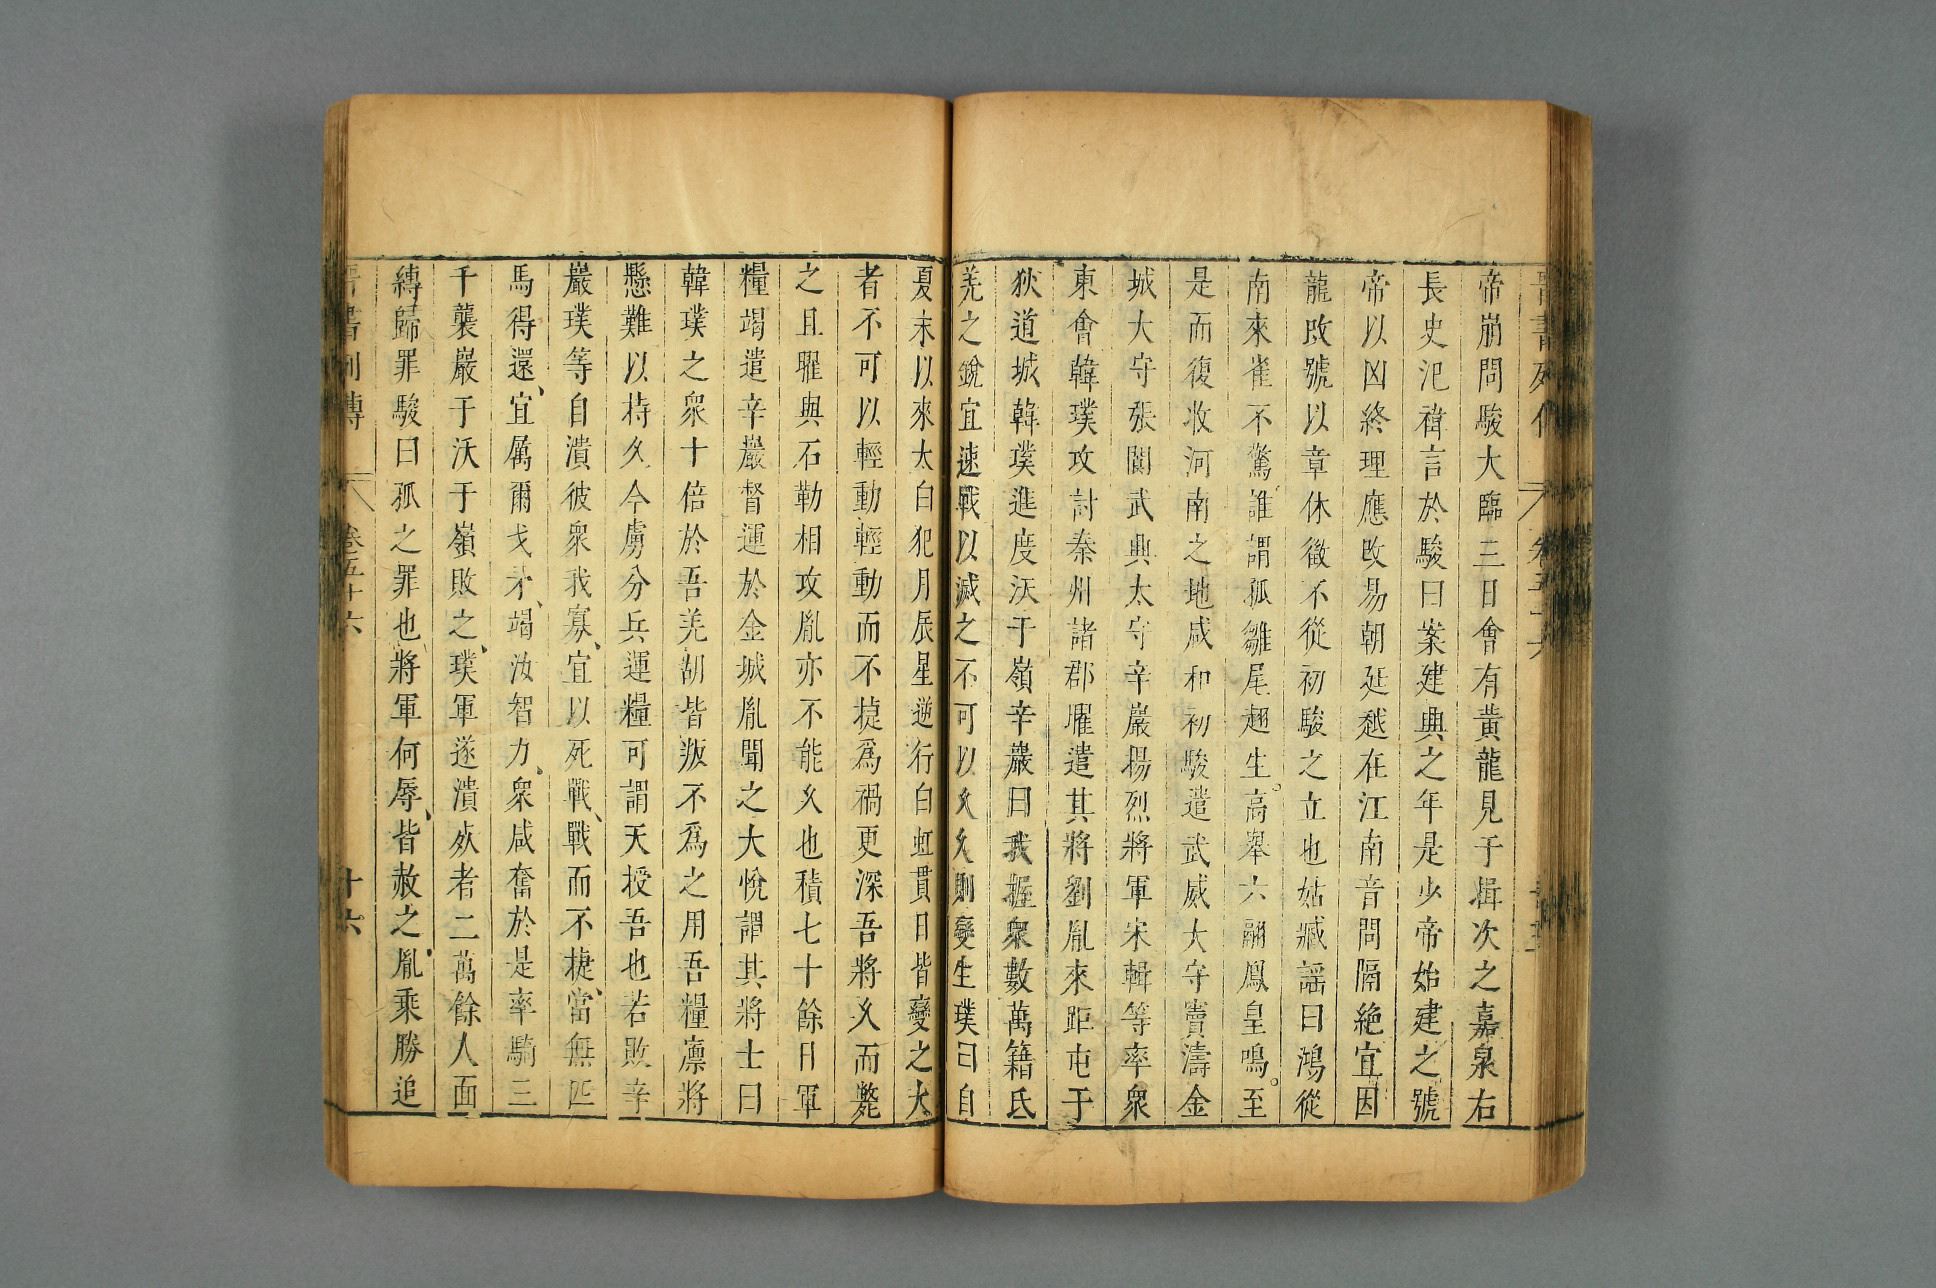 帝崩問駿大臨三日會有黃龍見于揖次之嘉泉右
長史氾禕言於駿曰案建興之年是少帝始建之號
帝以凶終理應改易朝廷越在江南音問隔絶宜因
龍改號以章休徵不從初駿之立也姑臧謡曰鴻從
南來雀不驚誰謂孤雛尾翅生。高舉六翮鳳皇鳴。至
是而復收河南之地咸和初駿遣武威大守竇濤金
城大守張閬武興太守辛巖揚烈將軍宋輯等率衆
東會韓璞攻討秦州諸郡曜遣其將劉胤來距屯于
狄道城韓璞進度沃于嶺辛巖曰我握衆數萬籍氐
羌之銳宜速戰以滅之不可以久久則變生璞曰自
夏末以來太白犯月辰星逆行白虹貫日皆變之大
者不可以輕動輕動而不捷爲禍更深吾將久而斃
之且曜與石勒相攻胤亦不能久也積七十餘日軍
糧竭遣辛巖督運於金城胤聞之大悅謂其將士曰
韓璞之衆十倍於吾羌胡皆叛不爲之用吾糧廩將
懸難以持久今虜分兵運糧可謂天授吾也若敗辛
巖璞等自潰彼衆我寡、宜以死戰、戰而不捷、當無匹
馬得還、宜厲爾戈矛、竭汝智力、衆咸奮於是率騎三
千襲巖于沃于嶺敗之、璞軍遂潰歿者二萬餘人面
縛歸罪駿曰孤之罪也、將軍何辱、皆赦之、胤乘勝追
晉書列傳 卷五十六 十六